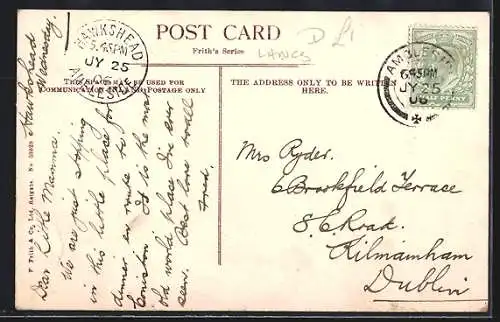 POST CARD
Frith's Series
D L1
LANCS
HAWKSHEAD
5.45PM
JY 25
06
AMBLESIDE
THIS SPACE MAY BE USED FOR
COMMUNICATION INLAND POSTAGE ONLY
THE ADDRESS ONLY TO BE WRITTEN
HERE.
AMBLESIDE
6.45PM
JY 25
06
HALF PENNY
F Frith & Co., Ltd., Reigate. No.
Hawkshead
Wednesday.
Dear Little Mamma.
We are just stopping
in this little place for
dinner en route to
Coniston It is the most
old world place I've ever
seen. Best love to all
Fred.
Mrs Ryder.
6 Brookfield Terrace
S. C. Road.
Kilmainham
Dublin